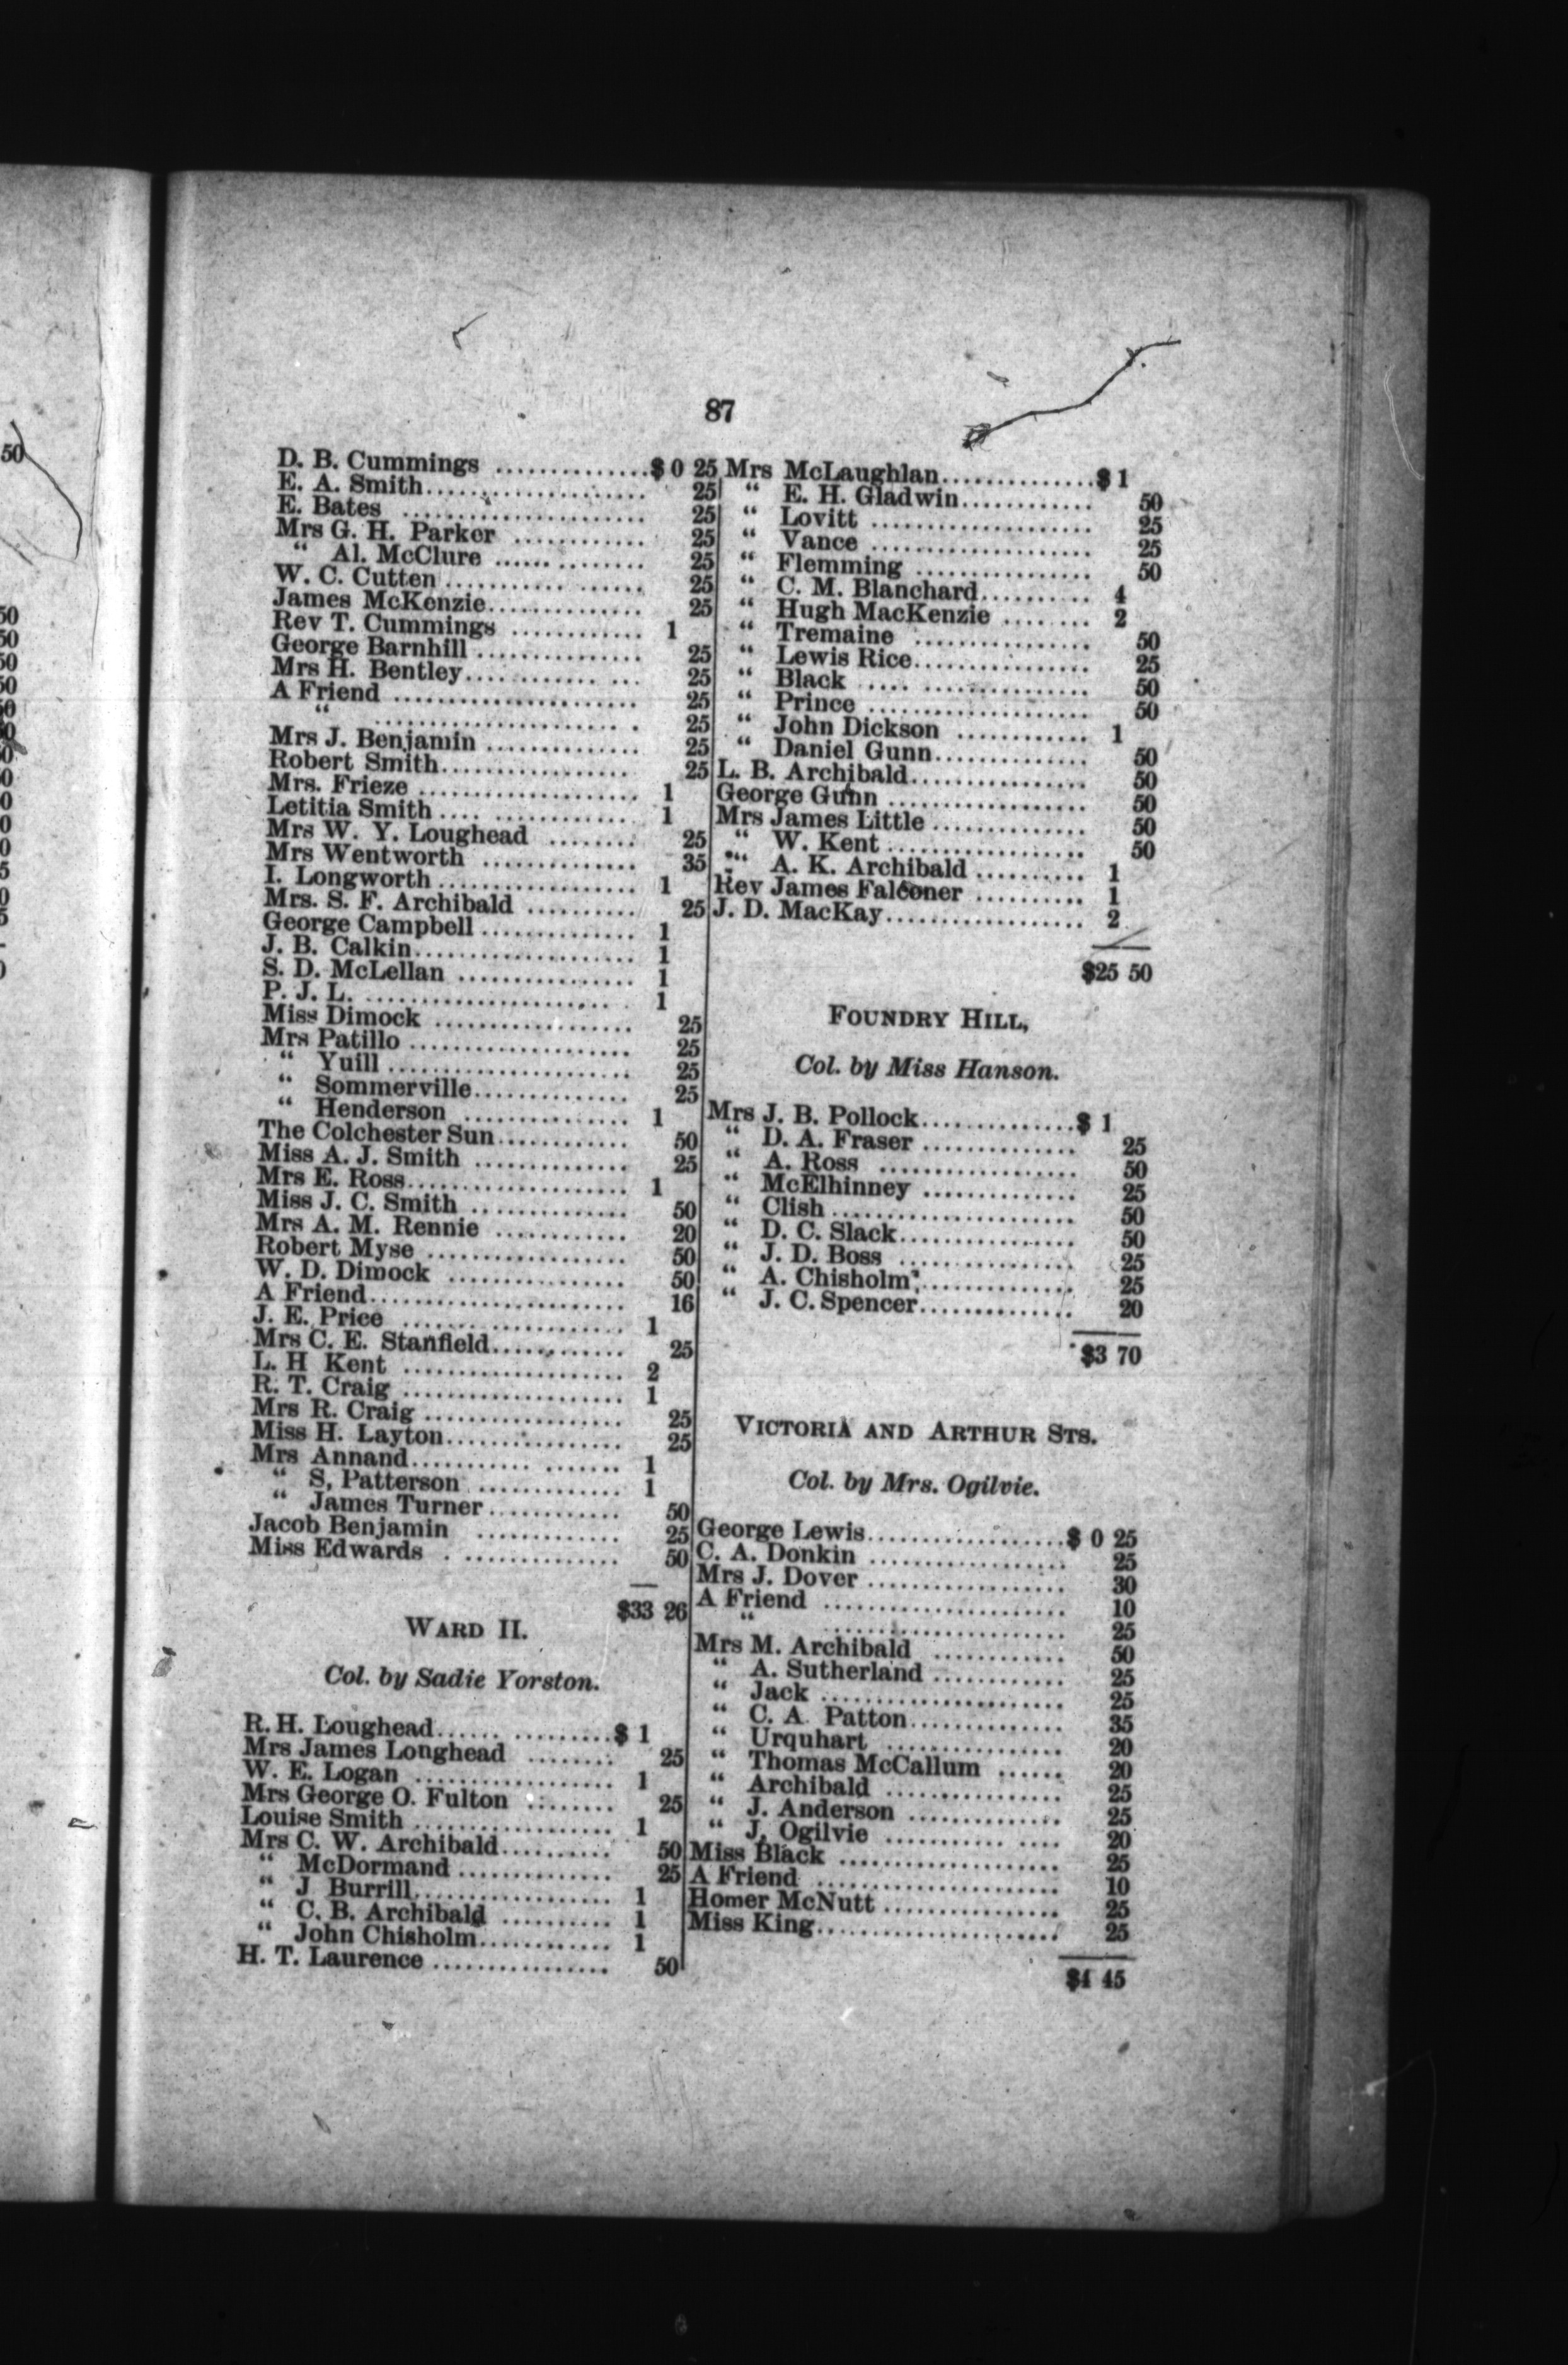 87
D. B. Cummings ..............$ 0 25
E. A. Smith...................... 25
E. Bates ........................ 25
Mrs G. H. Parker ............ 25
“ Al. McClure ............... 25
W. C. Cutten .................. 25
James McKenzie............... 25
Rev T. Cummings ............ 1
George Barnhill ............... 25
Mrs H. Bentley................ 25
A Friend ........................ 25
“ ........................... 25
Mrs J. Benjamin .............. 25
Robert Smith................... 25
Mrs. Frieze ..................... 1
Letitia Smith.... .............. 1
Mrs W. Y. Loughead ........ 25
Mrs Wentworth ............... 35
I. Longworth ................... 1
Mrs. S. F. Archibald .......... 25
George Campbell .............. 1
J. B. Calkin...................... 1
S. D. McLellan ................ 1
P. J. L. ......................... 1
Miss Dimock ................... 25
Mrs Patillo ...................... 25
“ Yuill ........................ 25
“ Sommerville............... 25
“ Henderson ................ 1
The Colchester Sun............ 50
Miss A. J. Smith .............. 25
Mrs E. Ross...................... 1
Miss J. C. Smith ............... 50
Mrs A. M. Rennie ............ 20
Robert Myse ................... 50
W. D. Dimock ................. 50
A Friend......................... 16
J. E. Price ...................... 1
Mrs C. E. Stanfield............ 25
L. H Kent ...................... 2
R. T. Craig ...................... 1
Mrs R. Craig .................... 25
Miss H. Layton................. 25
Mrs Annand........... ....... 1
“ S, Patterson .............. 1
“ James Turner............. 50
Jacob Benjamin .............. 25
Miss Edwards . ............... 50
$33 26
WARD II.
Col. by Sadie Yorston.
R. H. Loughead...... ..........$ 1
Mrs James Longhead ........ 25
W. E. Logan .................... 1
Mrs George O. Fulton ........ 25
Louise Smith .................... 1
Mrs C. W. Archibald.......... 50
“ McDormand ............... 25
“ J Burrill.................... 1
“ C. B. Archibald .......... 1
“ John Chisholm............. 1
H. T. Laurence ................. 50
Mrs McLaughlan...............$ 1
“ E. H. Gladwin............. 50
“ Lovitt ...................... 25
“ Vance ...................... 25
“ Flemming ................. 50
“ C. M. Blanchard.......... 4
“ Hugh MacKenzie ........ 2
“ Tremaine ................. 50
“ Lewis Rice................. 25
“ Black .... ................ 50
“ Prince ...................... 50
“ John Dickson ............ 1
“ Daniel Gunn............... 50
L. B. Archibald................. 50
George Gunn .................... 50
Mrs James Little ............... 50
“ W. Kent ................... 50
“ A. K. Archibald .......... 1
Rev James Falconer .......... 1
J. D. MacKay................... 2
$25 50
FOUNDRY HILL,
Col. by Miss Hanson.
Mrs J. B. Pollock...............$ 1
“ D. A. Fraser ............... 25
“ A. Ross ................... 50
“ McElhinney ............... 25
“ Clish ........................ 50
“ D. C. Slack................. 50
“ J. D. Boss ................. 25
“ A. Chisholm............... 25
“ J. C. Spencer............... 20
$3 70
VICTORIA AND ARTHUR STS.
Col. by Mrs. Ogilvie.
George Lewis...................$ 0 25
C. A. Donkin ................... 25
Mrs J. Dover .................... 30
A Friend ........................ 10
“ ........................ 25
Mrs M. Archibald ............ 50
“ A. Sutherland ............. 25
“ Jack ........................ 25
“ C. A. Patton............... 35
“ Urquhart ................. 20
“ Thomas McCallum ...... 20
“ Archibald ................. 25
“ J. Anderson ............... 25
“ J. Ogilvie ........... .... 20
Miss Black ...................... 25
A Friend ........................ 10
Homer McNutt ................. 25
Miss King........................ 25
$4 45